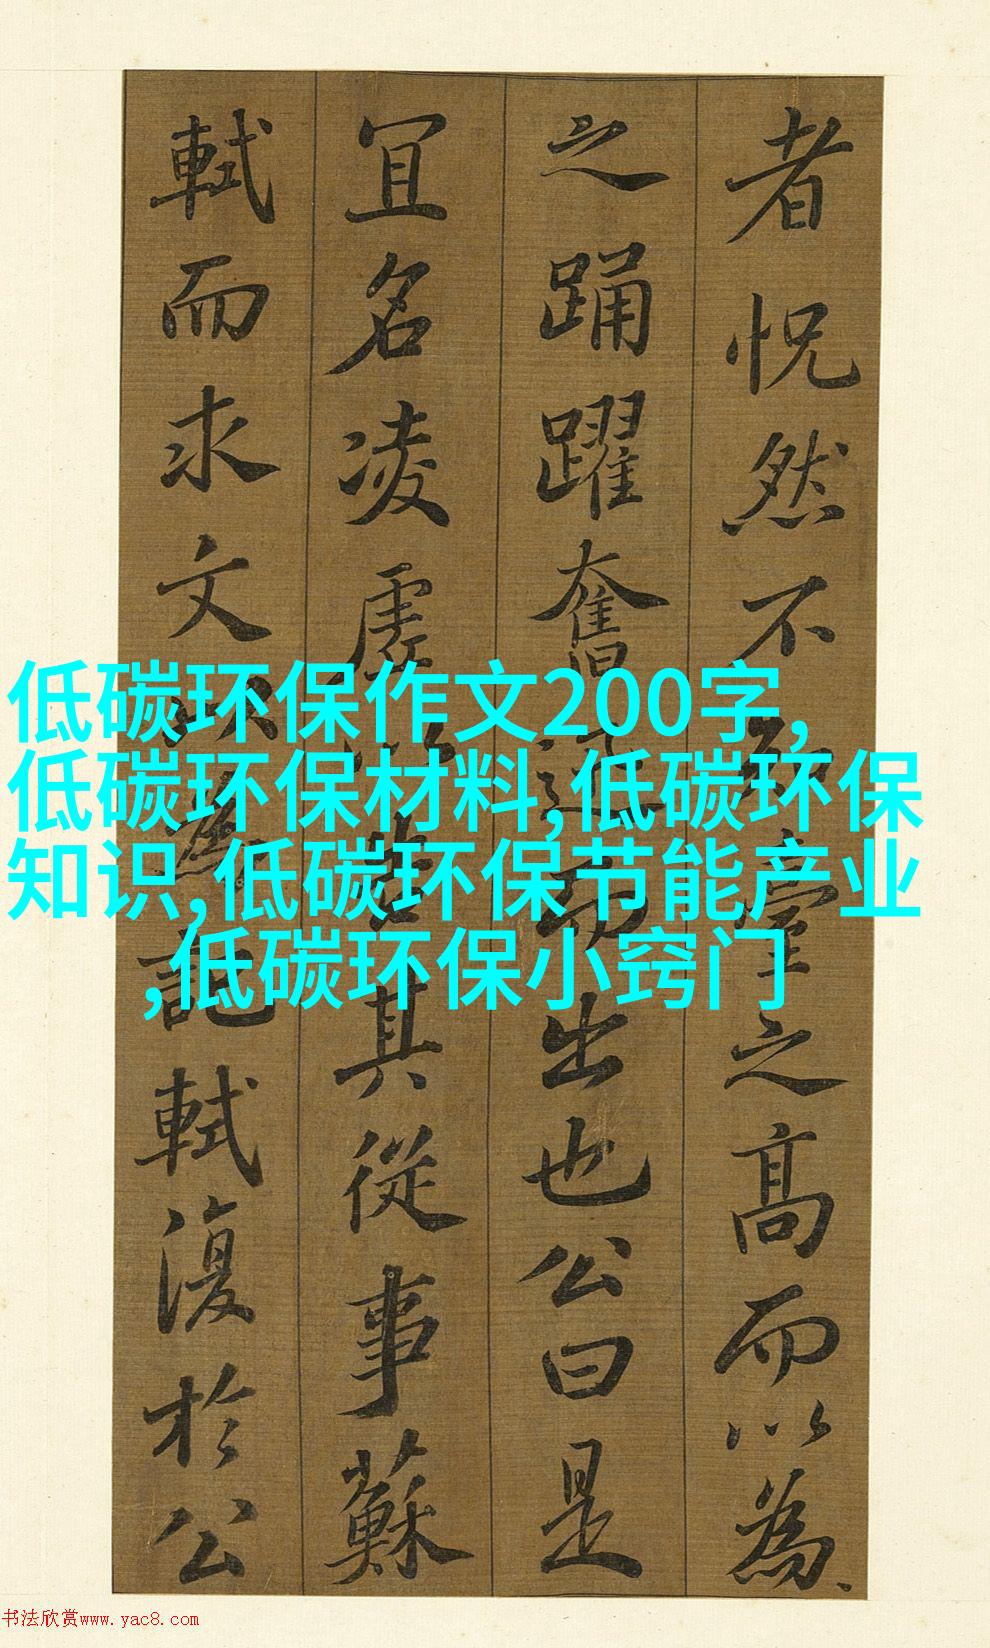 者怳然不知臺之髙而以為
之踊躍奮迅而出也公曰是
冝名凌虛以告其從事蘇
軾而求文以為記軾復於公
低碳环保作文200字,
低碳环保材料,低碳环保
知识,低碳环保节能产业
,低碳环保小窍门
书法欣赏www.yac8.com